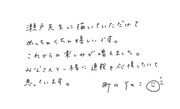 瀬戸先生に描いていただけて
めっちゃくちゃ嬉しいです。
これからの楽しみが増えました。
みなさんと一緒に連載を応援したいと
思っています。
町のそのこ